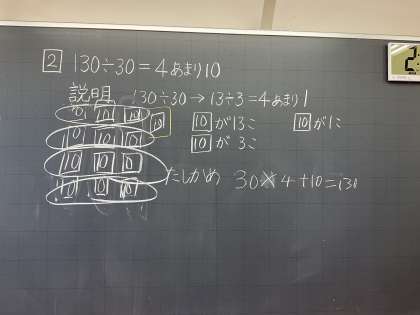 2 130÷30=4あまり10
説明 130÷30→13÷3=4あまり1
10 10 10 10
10が13こ 10が1こ
10 10 10
10が3こ
10 10 10
たしかめ 30×4+10=130
10 10 10